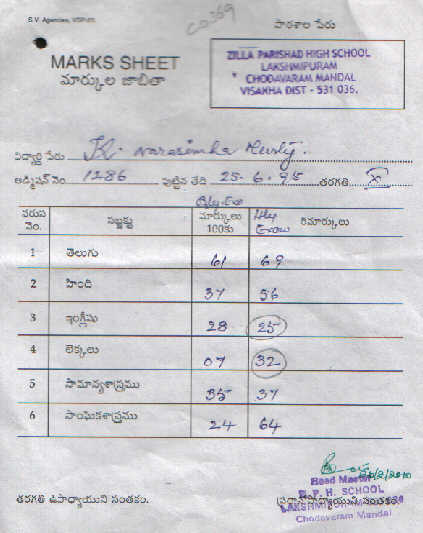 S.V. Agencies, VSP(dt).
CD369
పాఠశాల పేరు
MARKS SHEET
మార్కుల జాబితా
ZILLA PARISHAD HIGH SCHOOL
LAKSHMIPURAM
CHODAVARAM MANDAL
VISAKHA DIST - 531 036.
విద్యార్థి పేరు K. Narasimha Murty.
అడ్మిషన్ నెం. 1286 పుట్టిన తేది 25-6-95 తరగతి X
వరుస నెం. సబ్జక్టు మార్కులు 100కు Hly రిమార్కులు
1 తెలుగు 61 69
2 హింది 37 56
3 ఇంగ్లీషు 28 25
4 లెక్కలు 07 32
5 సామాన్యశాస్త్రము 35 37
6 సాంఘికశాస్త్రము 24 64
20/2/2010
తరగతి ఉపాధ్యాయుని సంతకం. ప్రధానోపాధ్యాయుని సంతకం.
Head Master
Z. P. H. SCHOOL
LAKSHMIPURAM
Chodavaram Mandal